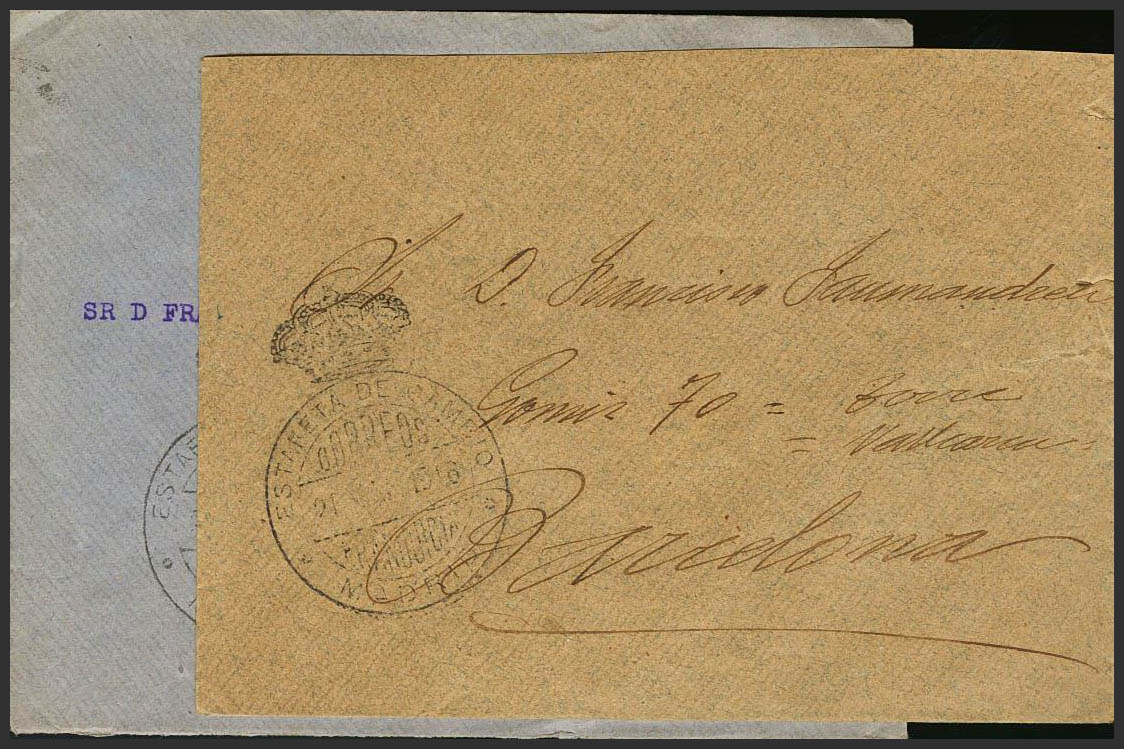 SR D FRA
Sr D. Francisco
Gomis 70 = Torre
Barcelona
ESTAFETA DE CAMBIO
CORREOS
21
FRANQUICIA
MADRID
ESTAF